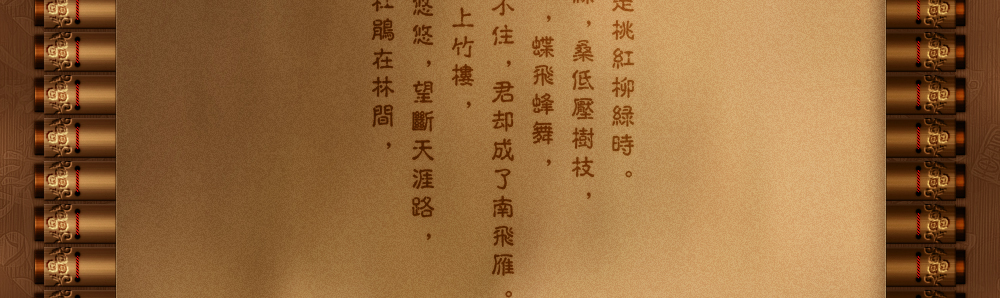 桃紅柳綠時。
，桑低壓樹枝，
，蝶飛蜂舞，
不住，君却成了南飛雁。
上竹樓，
悠悠，望斷天涯路，
杜鵑在林間，